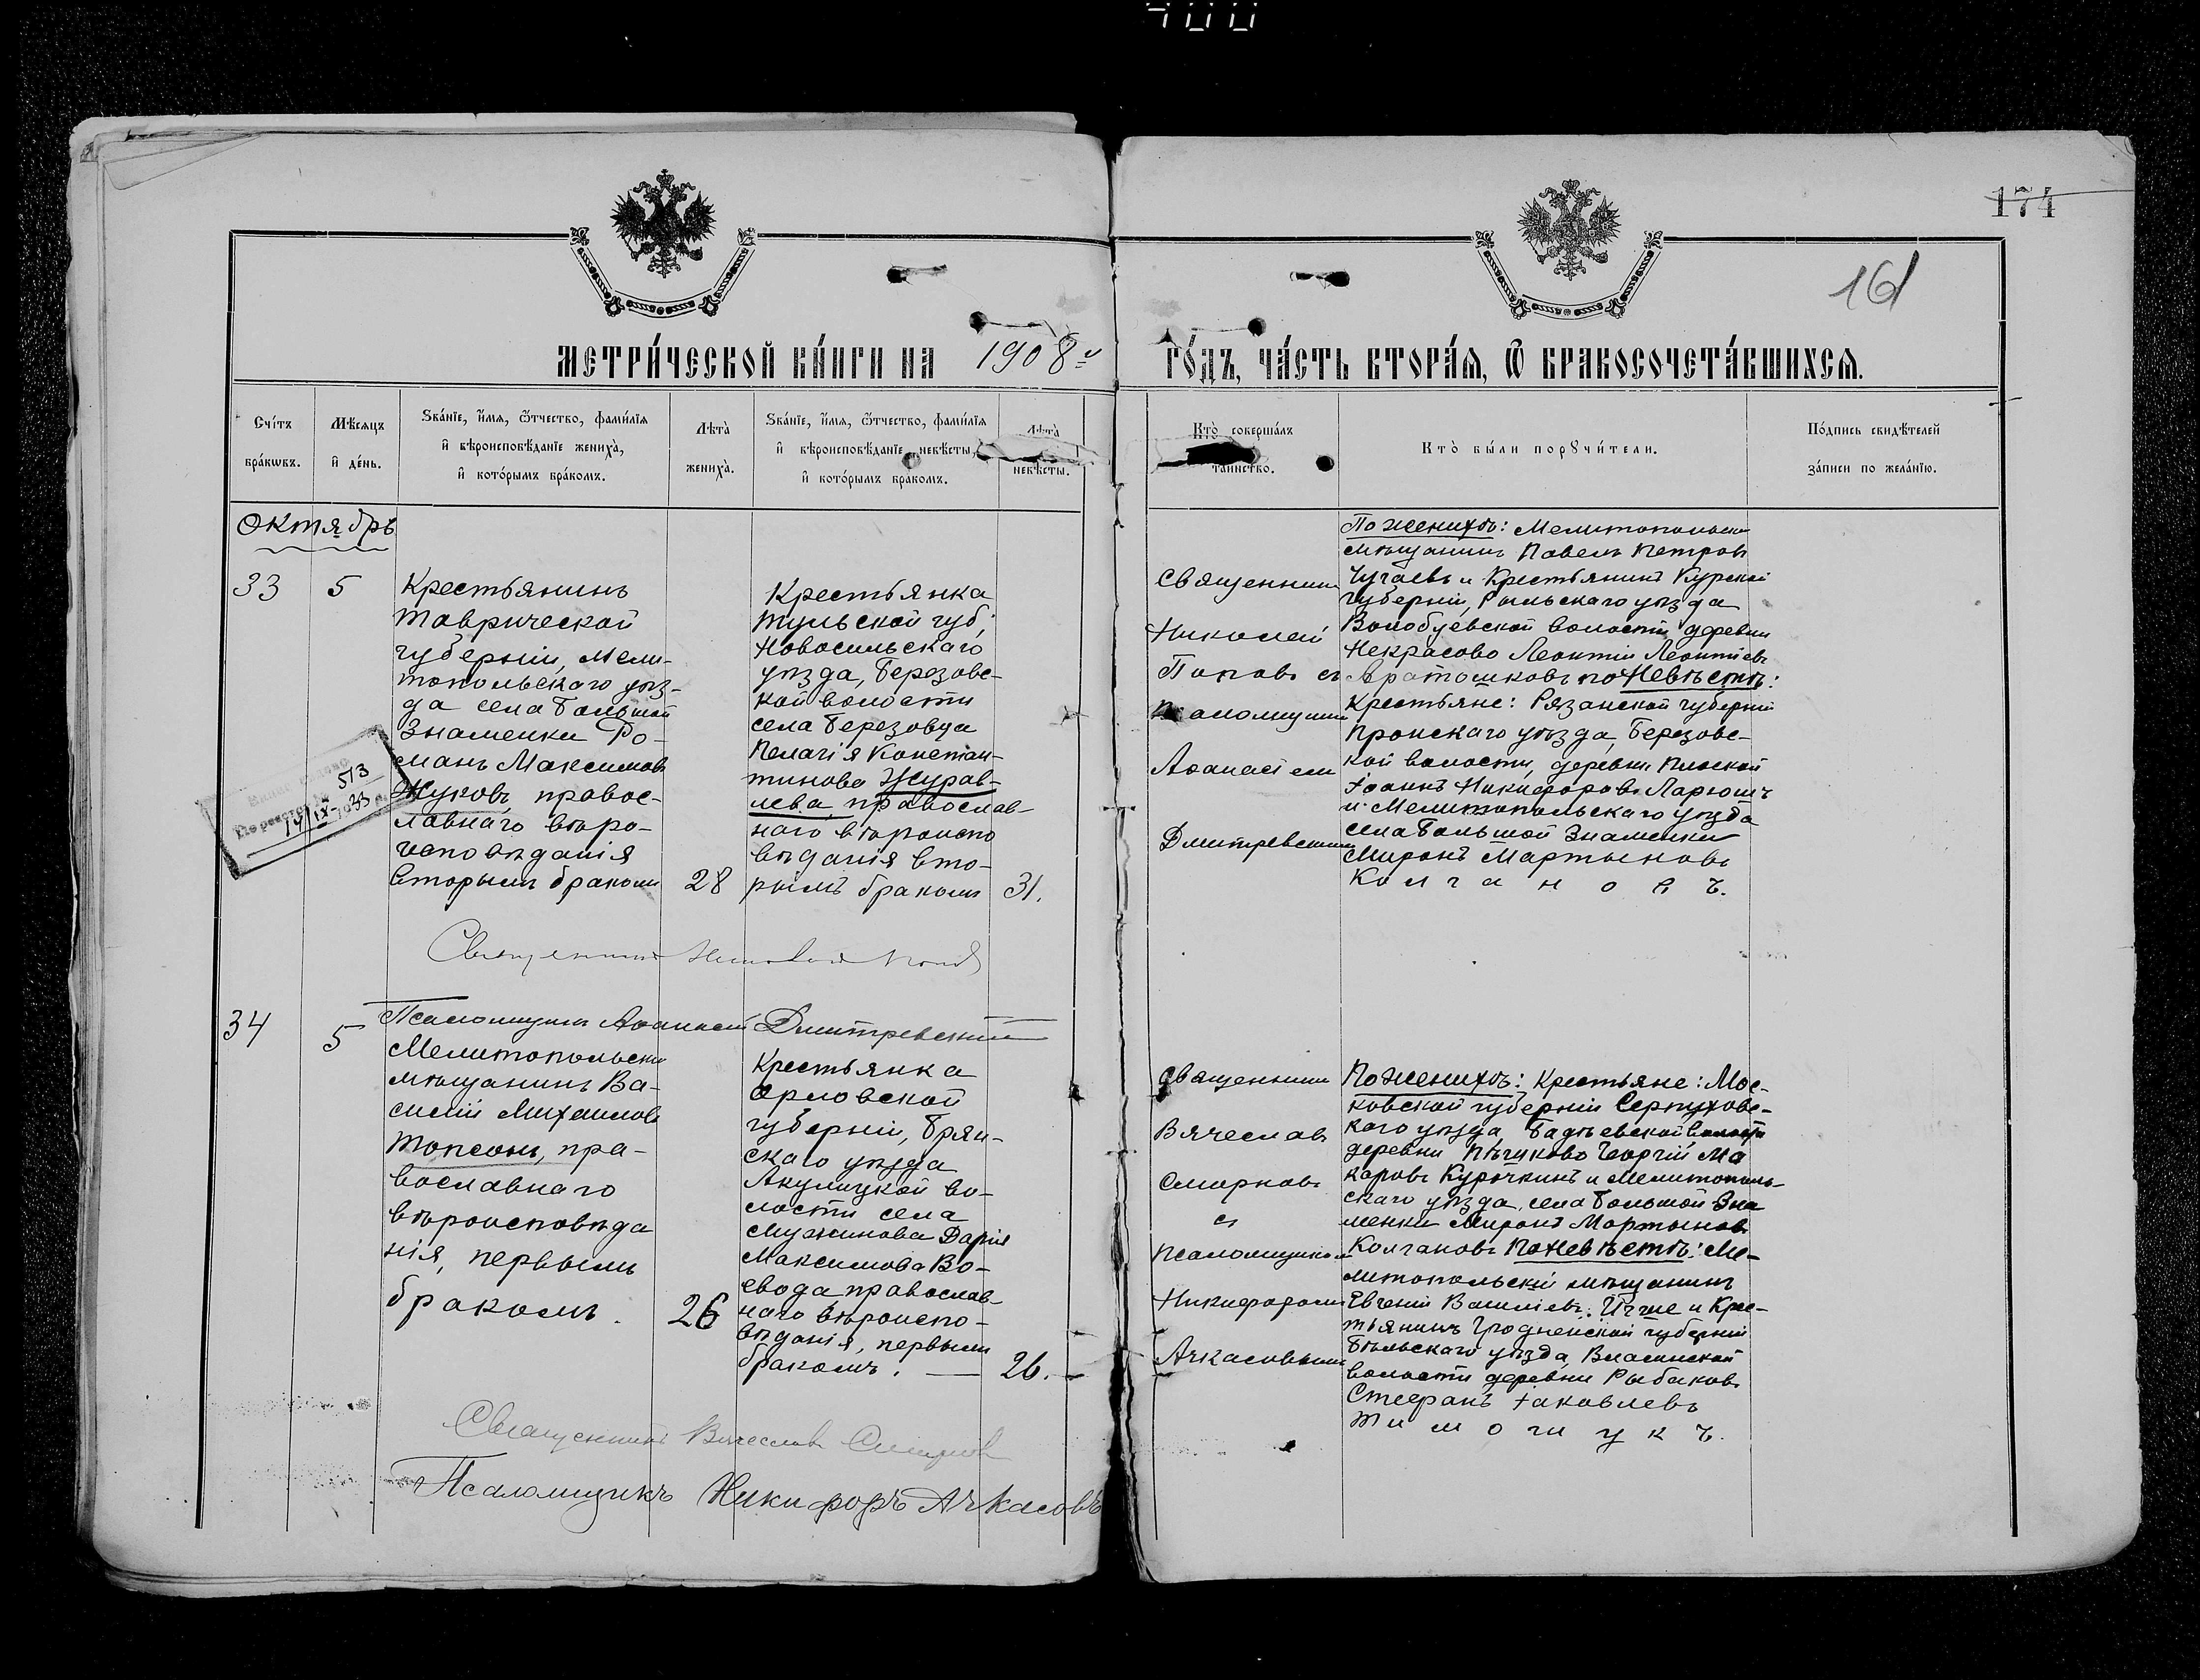 174
161
МЕТРИ́ЧЕСКОЙ КНИ́ГИ НА 1908 й ГО́ДЪ, ЧА́СТЬ ВТОРА́Я, Ѿ БРАКОСОЧЕТА́ВШИХСЯ.
Сче́тъ
бра́кѡвъ.
Мѣ́сяцъ
и҆ де́нь.
Ѕва́нїе, и҆́мя, ѻ҆́тчество, фами́лїя
и҆ вѣроисповѣ́данїе жениха̀,
и҆ кото́рымъ бра́комъ.
Лѣта̀
жениха̀.
Ѕва́нїе, и҆́мя, ѻ҆́тчество, фами́лїя
и҆ вѣроисповѣ́данїе невѣ́сты,
и҆ кото́рымъ бра́комъ.
Лѣта̀
невѣ́сты.
Кто̀ соверша́лъ
та́инство.
Кто̀ бы́ли порꙋчи́тели.
По́дпись свидѣ́телей
за́писи по жела́нїю.
Октябрь
33
5
Крестьянинъ
Таврической
губерніи, Мели-
топольскаго уѣз-
да села Большой
Знаменки Ро-
манъ Максимовъ
Жуковъ, правос-
лавнаго вѣро-
исповѣданія
вторымъ бракомъ
28
Крестьянка
Тульской губ,
Новосильскаго
уѣзда, Березовс-
кой волости
села Березовца
Пелагія Констан-
тинова Журав-
лева, православ-
наго вѣроиспо
вѣданія вто-
рымъ бракомъ
31.
Священникъ
Николай
Поповъ съ
Псаломщик
Аѳанасіем
Дмитревским
По женихѣ: Мелитопольскій
мѣщанинъ Павелъ Петровъ
Чугаевъ и Крестьянинъ Курской
губерніи, Рыльскаго уѣзда
Волобуевской волости деревни
Некрасово Леонтій Леонтіевъ
по Невѣстѣ:
Крестьяне: Рязанской губерніи
Пронскаго уѣзда, Березовс-
кой волости, деревни Плоской
Іоаннъ Никифоровъ
и Мелитопольскаго уѣзда
села Большой Знаменки
Миронъ Мартыновъ
Колгановъ.
По реестру № 513
14/IX-1933
Священникъ Николай Поповъ
Псаломщикъ Аѳанасій Дмитревскій
34
5
Мелитопольскій
мѣщанинъ Ва-
силій Михаиловъ
Топсонъ, пра-
вославнаго
вѣроисповѣда
нія, первымъ
бракомъ.
26
Крестьянка
Орловской
губерніи, Брян-
скаго уѣзда
Акулицкой во-
лости села
Мужинова Дарія
Максимова Во-
евода, православ-
наго вѣроиспо-
вѣданія, первымъ
бракомъ. —
26.
Священникъ
Вячеславъ
Смирновъ
съ
псаломщиком
Никифоромъ
Ачкасовымъ
По женихѣ: Крестьяне: Мос-
ковской губерніи Серпуховс-
каго уѣзда, Бадѣевской волости
деревни Пѣшково Георгій Ма
каровъ Курочкинъ и Мелитополь-
скаго уѣзда, села Большой Зна
менки Миронъ Мартыновъ
Колгановъ По Невѣстѣ: Ме-
литопольскій мѣщанинъ
Евгеній Василіевъ и Крес-
тьянинъ Гродненской губерніи
Бѣльскаго уѣзда,
волости деревни Рыбаковъ
Стефанъ Іаковлевъ
Тимощукъ.
Священникъ Вячеславъ Смирновъ
Псаломщикъ Никифоръ Ачкасовъ